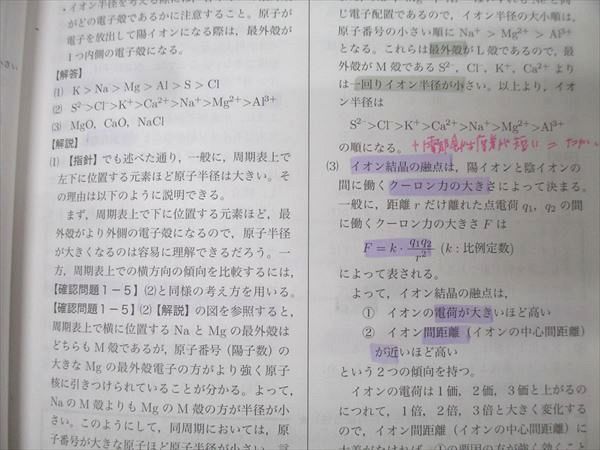 ・イオン半径を考える際に,
がどの電子殻であるかに注意すること。原子が
電子を放出して陽イオンになる際は,最外殻が
1つ内側の電子殻になる。
【解答】
(1) K>Na>Mg>Al>S>Cl
(2) S²⁻>Cl⁻>K⁺>Ca²⁺>Na⁺>Mg²⁺>Al³⁺
(3) MgO, CaO, NaCl
【解説】
(1)【指針】でも述べた通り,一般に,周期表上で
左下に位置する元素ほど原子半径は大きい。そ
の理由は以下のように説明できる。
まず,周期表上で下に位置する元素ほど,最
外殻がより外側の電子殻になるので,原子半径
が大きくなるのは容易に理解できるだろう。一
方,周期表上での横方向の傾向を比較するには,
【確認問題1-5】(2)と同様の考え方を用いる。
【確認問題1-5】(2)【解説】の図を参照すると,
周期表上で横に位置する Na と Mg の最外殻は
どちらも M 殻であるが,原子番号(陽子数)の
大きな Mg の最外殻電子の方がより強く原子
核に引きつけられていることが分かる。よって,
Na の M 殻よりも Mg の M 殻の方が半径が小
さい。このようにして,同周期においては,原
子番号が大きな原子ほど原子半径が小さい
じ電子配置であるので,イオン半径の大小順は,
原子番号の小さい順に Na⁺>Mg²⁺>Al³⁺
となる。これらは最外殻が L 殻であるので,最
外殻が M 殻である S²⁻, Cl⁻, K⁺, Ca²⁺ より
は一回りイオン半径が小さい。以上より,イオ
ン半径は
S²⁻>Cl⁻>K⁺>Ca²⁺>Na⁺>Mg²⁺>Al³⁺
の順になる。
(3) イオン結晶の融点は,陽イオンと陰イオンの
間に働くクーロン力の大きさによって決まる。
一般に,距離 r だけ離れた点電荷 q₁, q₂ の間
に働くクーロン力の大きさ F は
F = k · q₁q₂/r² (k:比例定数)
によって表される。
よって,イオン結晶の融点は,
① イオンの電荷が大きいほど高い
② イオン間距離(イオンの中心間距離)
が近いほど高い
という2つの傾向を持つ。
イオンの電荷は1価,2価,3価と上がるの
につれて,1倍,2倍,3倍と大きく変化する
ので,イオン間距離(イオンの中心間距離)に
大差がなければ,①の要因の方が強く効くこと